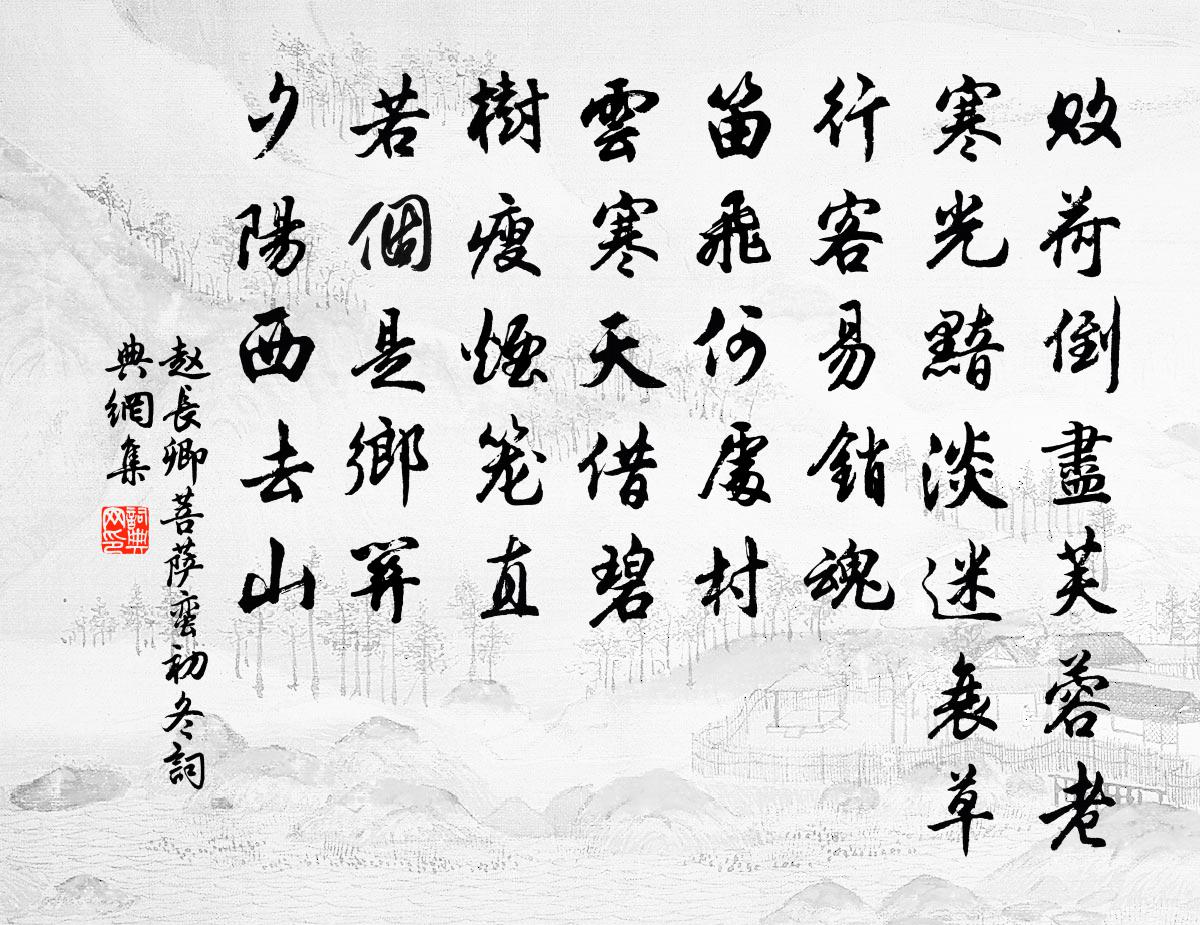 敗荷倒盡芙蓉老
寒光黯淡迷衰草
行客易銷魂
笛飛何處村
雲寒天借碧
樹瘦煙笼直
若個是鄉關
夕陽西去山
赵長卿菩萨蛮初冬詞
典網集
詞典网印